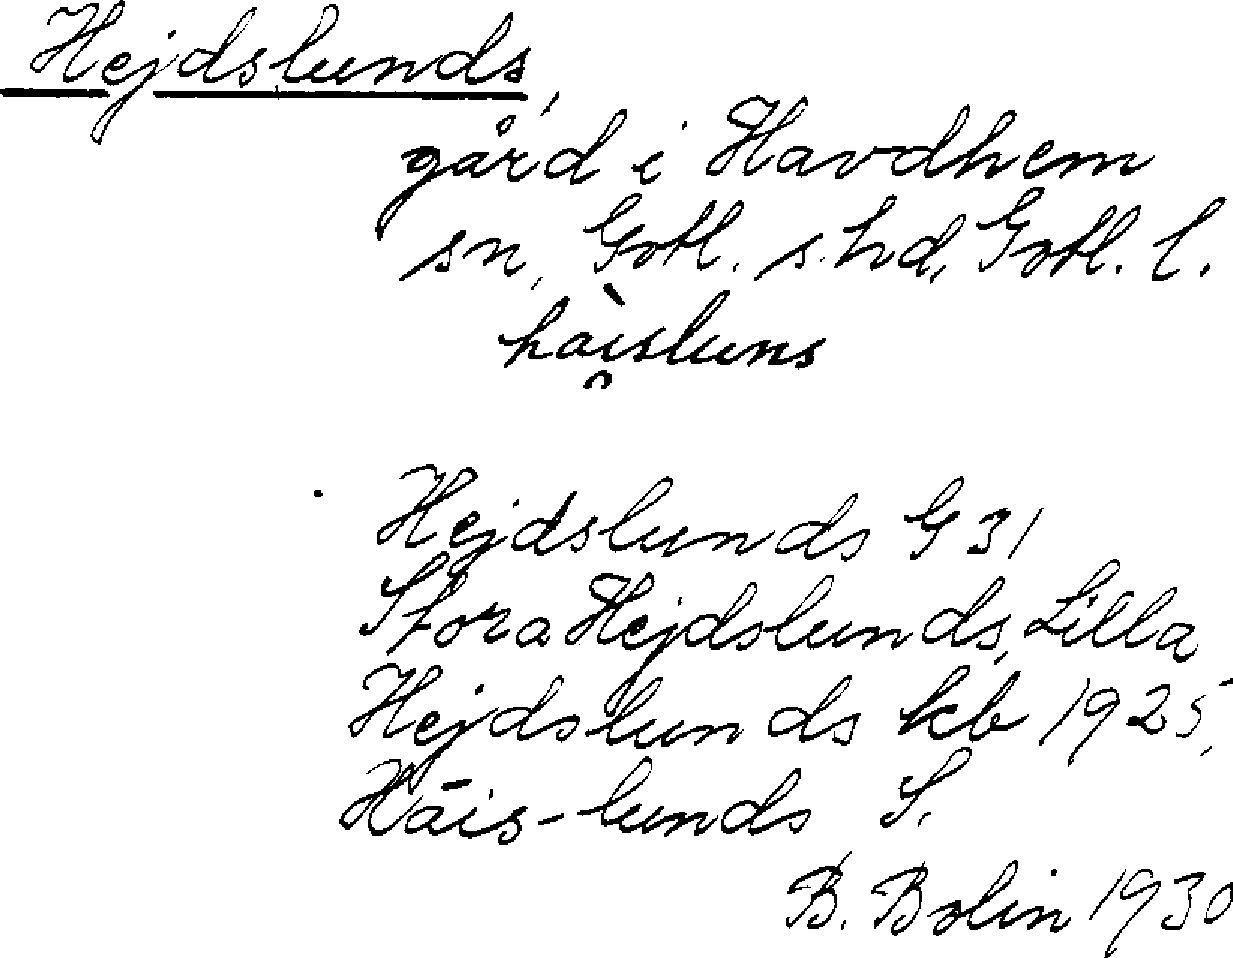 Hejdslunds,
gård i Havdhem
sn, Gotl. s. hd, Gotl. l.
hài̯sluns
Hejdslunds G 31
Stora Hejdslunds, Lilla
Hejdslunds kb 1925,
Hāis-lunds S.
B. Bolin 1930